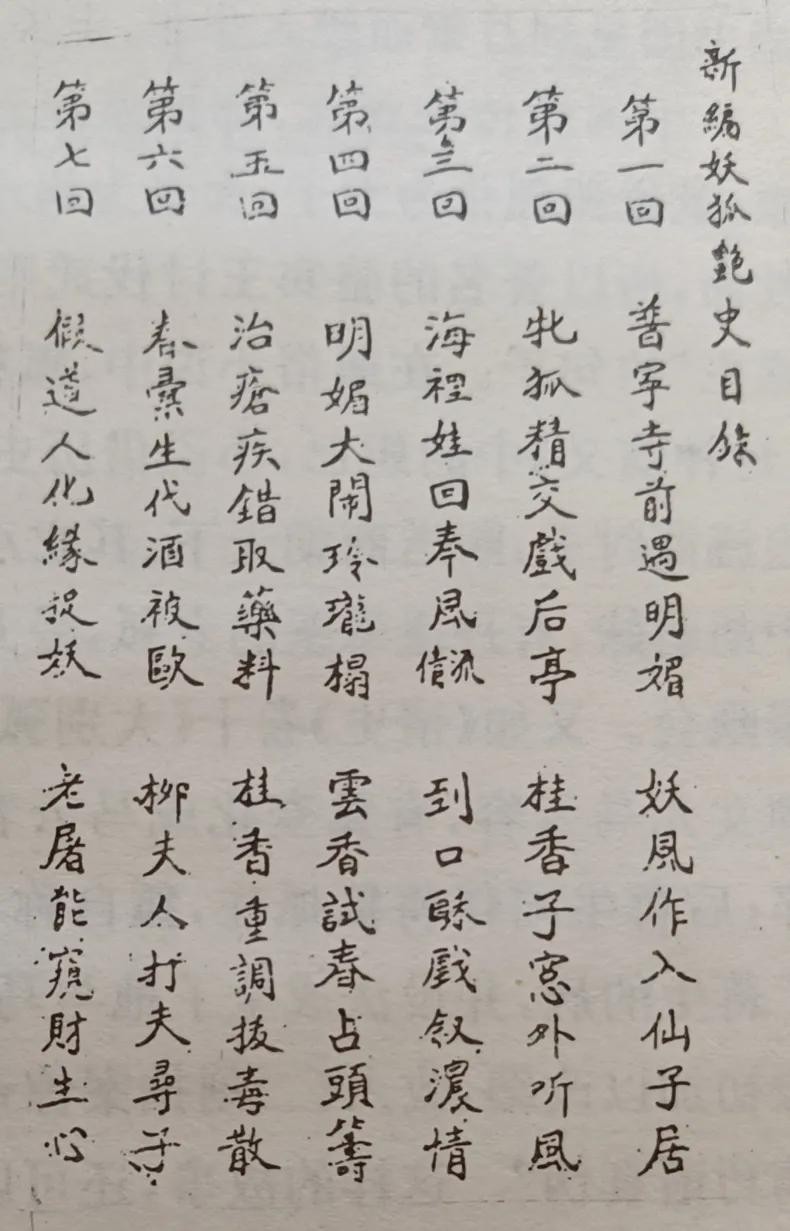 新編妖狐艶史目錄
第一回 普寧寺前遇明媚 妖風作入仙子居
第二回 牝狐精交戲后亭 桂香子窓外听風
第三回 海裡娃回奉風流信 到口酥戲叙濃情
第四回 明媚大鬧玲瓏榻 雲香試春占頭籌
第五回 治瘡疾錯取藥料 桂香重調拔毒散
第六回 春㯱生代酒被歐 柳夫人打夫尋子
第七回 假道人化緣捉妖 老屠能窺財生心